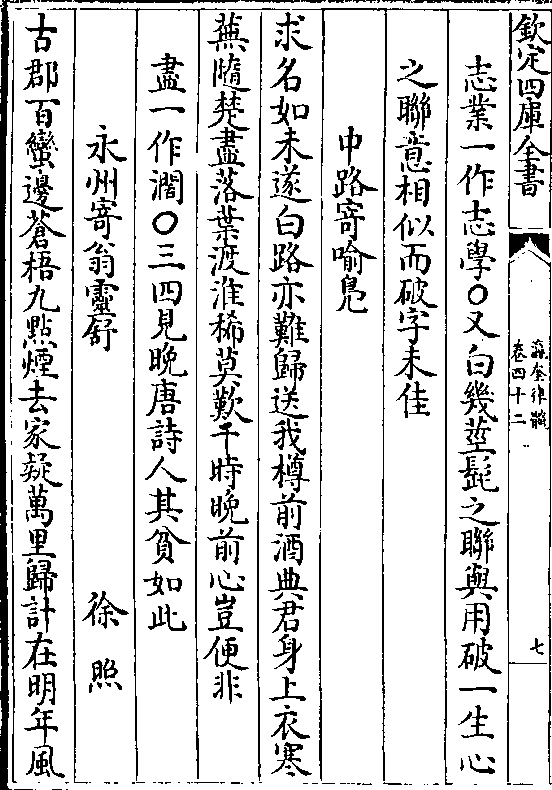 欽定四庫全書
瀛奎律髓
卷四十二
七
志業一作志學○又白幾莖髭之聯與用破一生心
之聯意相似而破字未佳
中路寄喻鳬
求名如未遂白路亦難歸送我樽前酒典君身上衣寒
蕪隨楚盡落葉渡淮稀莫歎干時晚前心豈便非
盡一作濶○三四見晚唐詩人其貧如此
永州寄翁靈舒　徐照
古郡百蠻邊蒼梧九點煙去家疑萬里歸計在明年風